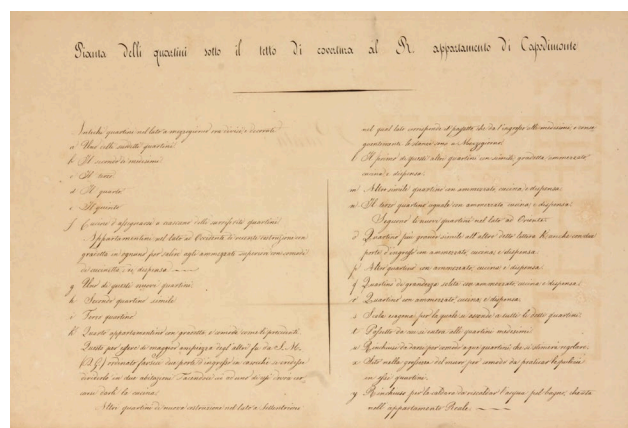 Pianta delli quartini sotto il tetto di covertura al R. appartamento di Capodimonte
Antichi quartini nel lato a mezzogiorno con cucina e
a Uno delli suddetti quartini
b Il secondo di
c Il terzo
d Il quarto
e Il quinto
f Cucine d'assegnarsi a ciascuno delli quartini
Appartamentini nel lato ad Occidente di con
gradetta in ognuno per salire agli ammezzati superiori con comodi
di cucinetta e dispenza
g Uno di questi nuovi quartini
h Secondo quartino simile
i Terzo quartino
k Questo appartamentino con gradetta e comodi come li precedenti
Questo per essere di maggior ampiezza degli altri fu da S. M.
(D. G.) ordinato farsi due porte d'ingresso in cui
dividerlo in due abitazioni in ad uno di essi
la cucina
Altri quartini di nuova costruzione nel lato a Settentrione
nel qual lato corrisponde il passetto che dà l'ingresso alli medesimi, e
le stanze sono a Mezzogiorno
l Il primo di questi altri quartini con simile gradetta ammezzato
cucina e dispensa
m Altro simile quartino con ammezzato, cucina, e dispensa
n Il terzo quartino uguale con ammezzato cucina, e dispensa
Sieguono li nuovi quartini nel lato ad Oriente
Quartino più grande simile all'altro della lettera K anche con due
porte d'ingresso con ammezzato, cucina, e dispensa
p Altro quartino con ammezzato, cucina e dispensa
q Quartino di grandezza solita con ammezzato cucina e dispensa
r Quartino con ammezzato cucina, e dispensa
s Scala per la quale si ascende a tutti li detti quartini
t Passetto da cui si entra alli quartini medesimi
u
x Siti nella grossezza del muro per comodo da praticar le
in essi quartini
y per la caldaia da riscaldar l'acqua pel bagno,
nell'appartamento Reale